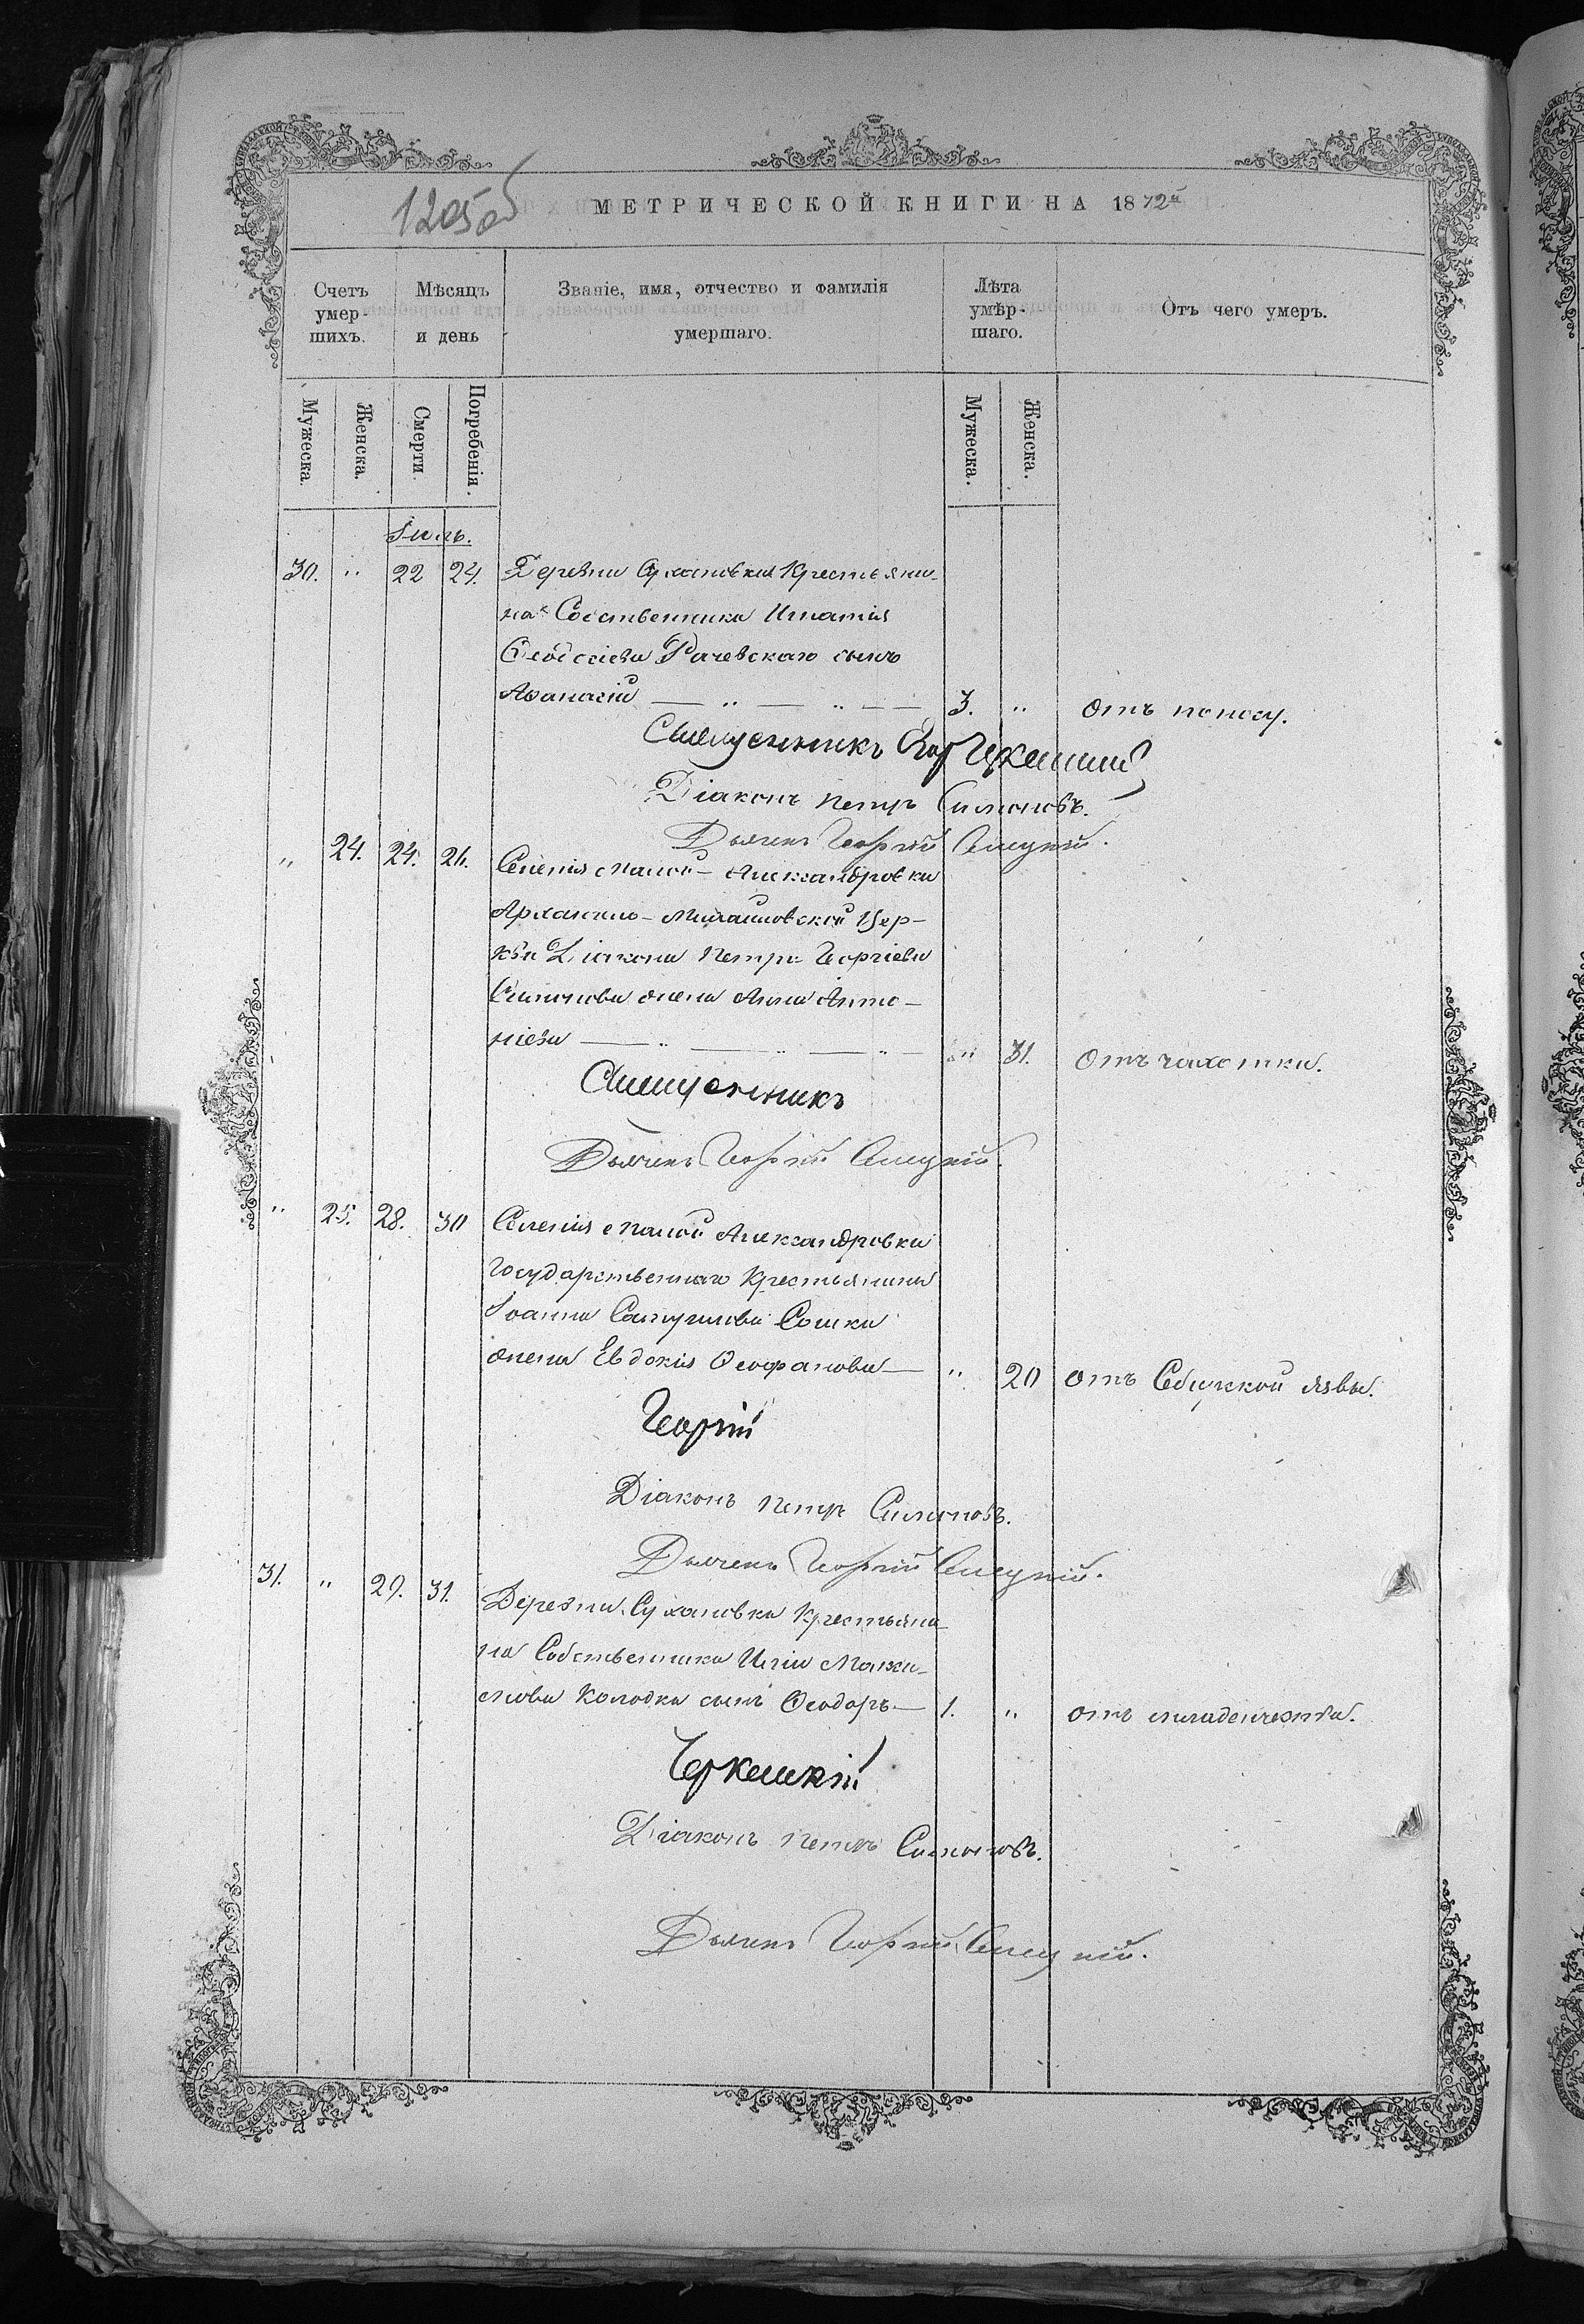 1205об
МЕТРИЧЕСКОЙ КНИГИ НА 1872й
Счетъ умер-шихъ.
Мѣсяцъ и день
Званіе, имя, отчество и фамилія умершаго.
Лѣта умѣр-шаго.
Отъ чего умеръ.
Мужеска.
Женска.
Смерти.
Погребенія.
Мужеска.
Женска.
Іюль.
30. " 22 24. Деревни Сухановки Крестьяни-
на Собственника Игнатія
Ѳеодосіева Рачевскаго сынъ
Аѳанасій — " — " — — 3. " Отъ поносу.
Священникъ Георгій
Діаконъ Петръ Симоновъ.
Дьячекъ Георгій
" 24. 24. 26. Селенія Малой-Александровки
Архангело-Михайловской Цер-
кви Діакона Петра Георгіева
Симонова жена Анна Анто-
ніева — " — " — " — " 31. Отъ чахотки.
Священникъ
Дьячекъ Георгій
" 25. 28. 30 Селенія Малой Александровки
Государственнаго Крестьянина
Іоанна Сошки
жена Евдокія Ѳеофанова — " 20 отъ Сибирской язвы.
Георгій
Діаконъ Петръ Симоновъ.
Дьячекъ Георгій
31. " 29. 31. Деревни Сухановки Крестьяни-
на Собственника Иліи Макси-
мова Колодки сынъ Ѳеодоръ — 1. " отъ младенческой.
Діаконъ Петръ Симоновъ.
Дьячекъ Георгій